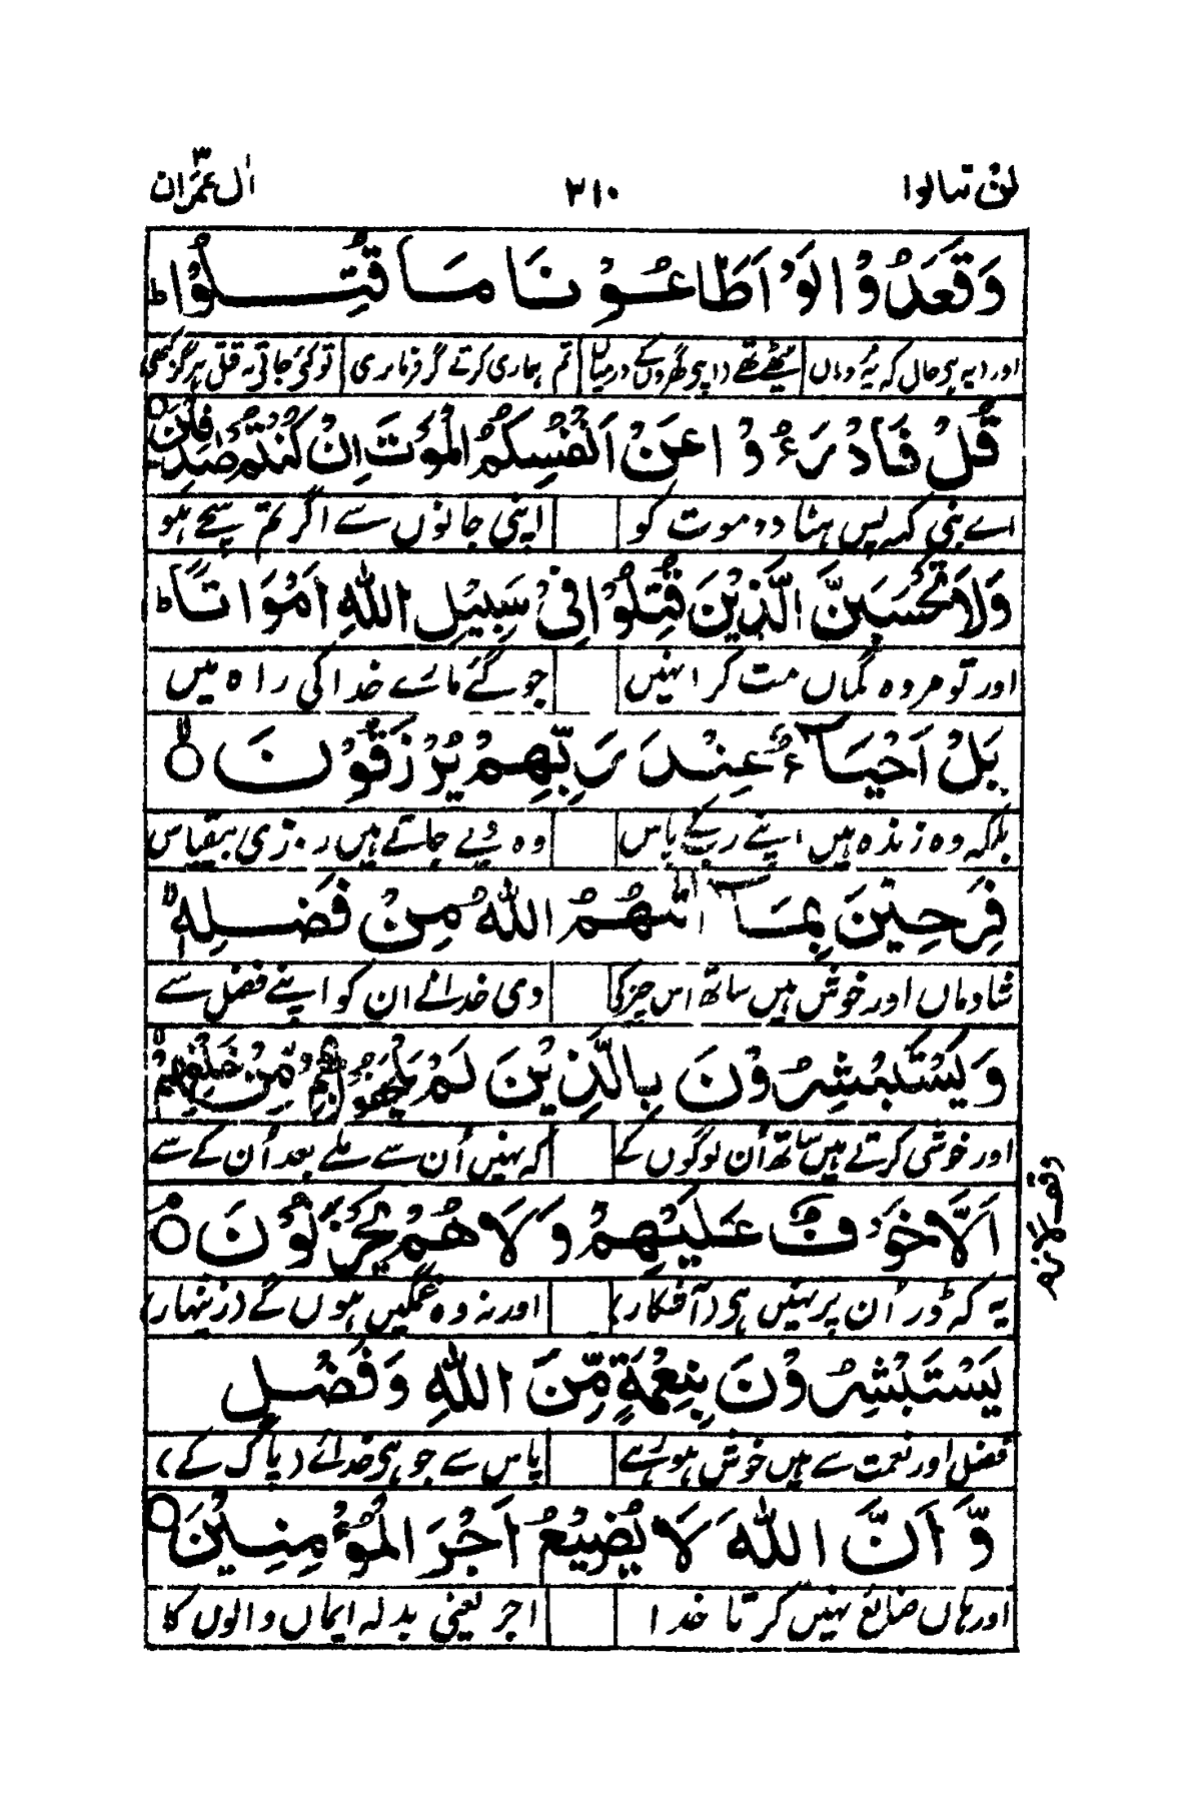 لن تنالوا ۳۱۰ اٰل عمرٰن ۳
وَقَعَدُوْا لَوْ اَطَاعُوْنَا مَا قُتِلُوْا ؕ
اور یہ ہی حال کہ یہ وہاں بیٹھے تھے (اپنے گھروں کے درمیاں) تم ہماری کرتے گر فرماں بری تو کئے جاتے نہ قتل ہرگز کبھی
قُلْ فَادْرَءُوْا عَنْ اَنْفُسِكُمُ الْمَوْتَ اِنْ كُنْتُمْ صٰدِقِیْنَ
اے نبی کہہ پس ہٹا دو موت کو اپنی جانوں سے اگر تم سچے ہو
وَلَا تَحْسَبَنَّ الَّذِیْنَ قُتِلُوْا فِیْ سَبِیْلِ اللّٰهِ اَمْوَاتًا ؕ
اور تو مردہ گماں مت کر انہیں جو گئے مارے خدا کی راہ میں
بَلْ اَحْیَآءٌ عِنْدَ رَبِّهِمْ یُرْزَقُوْنَ
بلکہ وہ زندہ ہیں اپنے رب کے پاس وہ دیے جاتے ہیں روزی بیقیاس
فَرِحِیْنَ بِمَآ اٰتٰىهُمُ اللّٰهُ مِنْ فَضْلِهٖ
شادماں اور خوش ہیں ساتھ اس چیز کے دی خدا نے ان کو اپنے فضل سے
وَیَسْتَبْشِرُوْنَ بِالَّذِیْنَ لَمْ یَلْحَقُوْا بِهِمْ مِّنْ خَلْفِهِمْ
اور خوشی کرتے ہیں ساتھ اُن لوگوں کے کہ نہیں اُن سے ملے بعد اُن کے سے
اَلَّا خَوْفٌ عَلَیْهِمْ وَلَا هُمْ یَحْزَنُوْنَ
یہ کہ ڈر اُن پر نہیں ہی (آشکار) اور نہ وہ غمگیں ہوں گے (زینہار)
یَسْتَبْشِرُوْنَ بِنِعْمَةٍ مِّنَ اللّٰهِ وَفَضْلٍ
فضل اور نعمت سے ہیں خوش ہو رہے پاس سے جو ہی خدائے (پاک کے)
وَّاَنَّ اللّٰهَ لَا یُضِیْعُ اَجْرَ الْمُؤْمِنِیْنَ
اور ہاں ضائع نہیں کرتا خدا اجر یعنی بدلہ ایماں والوں کا